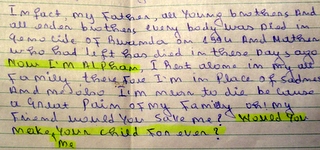 Impact my Father, all Young brothers And
all onden brothers every body was Died in
genocide of Rwanda on 1994 And Mother
who had left has died in these Days ago
Now I'm ALPham, I Rest alone in my all
Family there Fore I'm in Place of Sadness
And me also I'm mrun to die because
a Great Pain of my Family oh! my
Friend would You save me? Would You
make Your child For ever?
me